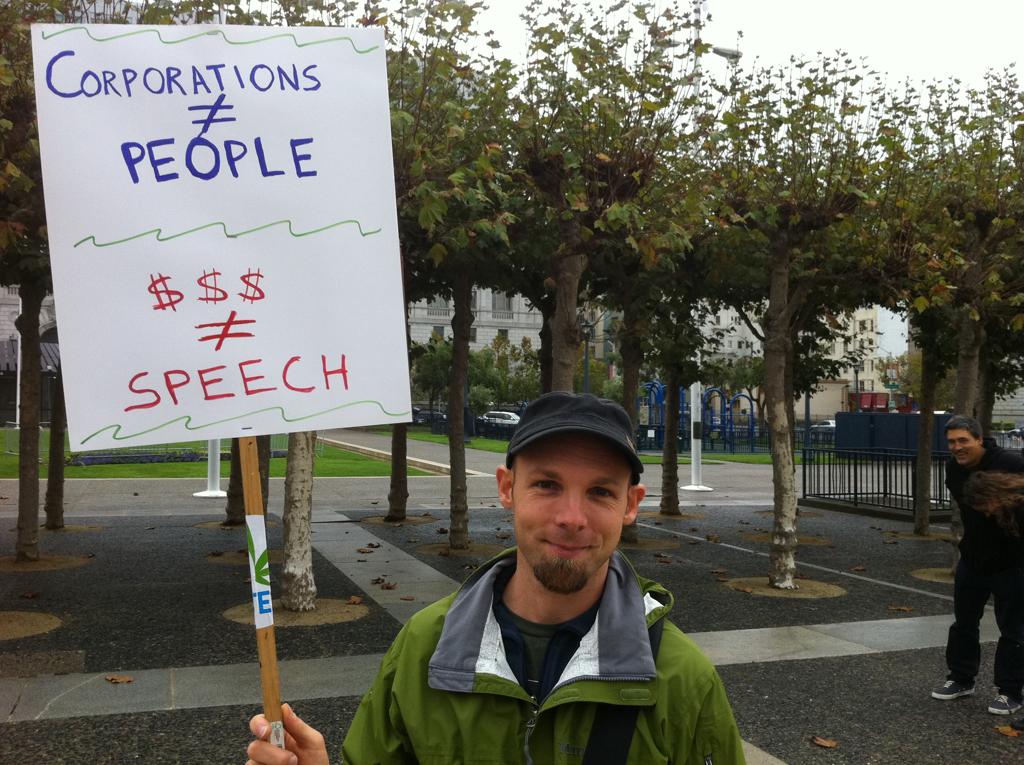 CORPORATIONS
≠
PEOPLE
$ $ $
≠
SPEECH
TE